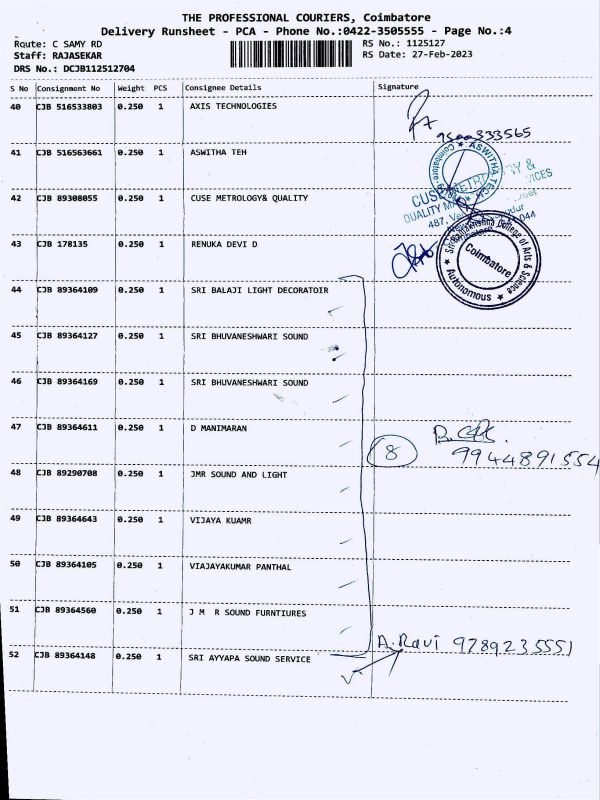 THE PROFESSIONAL COURIERS, Coimbatore
Delivery Runsheet - PCA - Phone No.:0422-3505555 - Page No.:4
Route: C SAMY RD RS No.: 1125127
Staff: RAJASEKAR RS Date: 27-Feb-2023
DRS No.: DCJB112512704
S No Consignment No Weight PCS Consignee Details Signature
40 CJB 516533803 0.250 1 AXIS TECHNOLOGIES
41 CJB 516563661 0.250 1 ASWITHA TEH
ASWITHA TECH
Coimbatore
42 CJB 89308055 0.250 1 CUSE METROLOGY& QUALITY
CUSE METRO
QUALITY
487,
044
43 CJB 178135 0.250 1 RENUKA DEVI D
College of Arts & Science
Coimbatore
Autonomous
44 CJB 89364109 0.250 1 SRI BALAJI LIGHT DECORATOIR
45 CJB 89364127 0.250 1 SRI BHUVANESHWARI SOUND
46 CJB 89364169 0.250 1 SRI BHUVANESHWARI SOUND
47 CJB 89364611 0.250 1 D MANIMARAN
8 9944891554
48 CJB 89290708 0.250 1 JMR SOUND AND LIGHT
49 CJB 89364643 0.250 1 VIJAYA KUAMR
50 CJB 89364105 0.250 1 VIAJAYAKUMAR PANTHAL
51 CJB 89364560 0.250 1 J M R SOUND FURNTIURES
A. Ravi 9789235551
52 CJB 89364148 0.250 1 SRI AYYAPA SOUND SERVICE